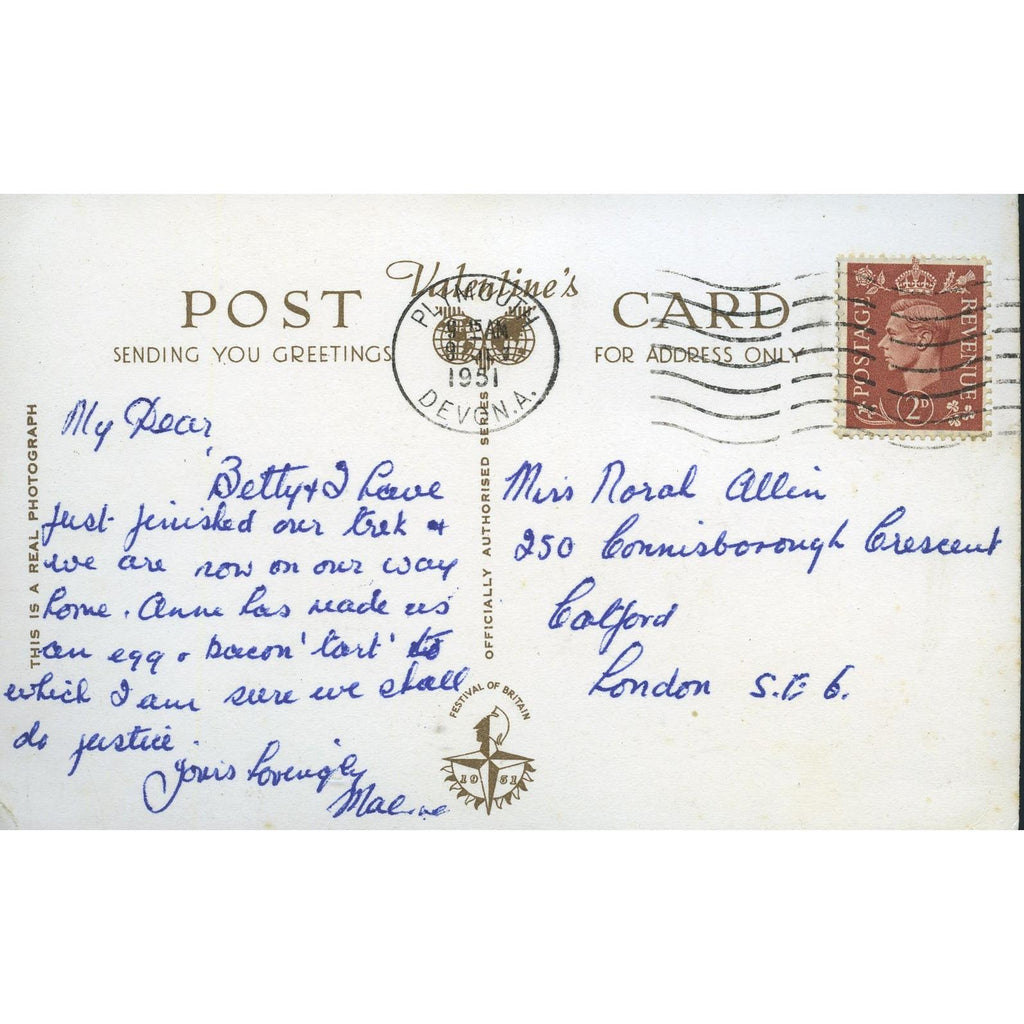 Valentine's
POST CARD
SENDING YOU GREETINGS
FOR ADDRESS ONLY
PLYMOUTH
1951
DEVON. A.
POSTAGE
REVENUE
2D
THIS IS A REAL PHOTOGRAPH
OFFICIALLY AUTHORISED SERIES
My Dear,
Betty & I have
just finished our trek &
we are now on our way
home. Anne has made us
an egg & bacon 'tart' to
which I am sure we shall
do justice.
Yours Lovingly
Miss Norah Allin
250 Connisborough Crescent
Catford
London S.E 6.
FESTIVAL OF BRITAIN
1951